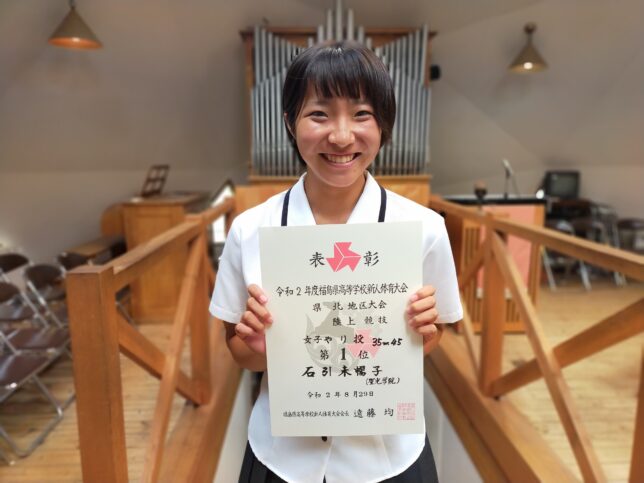 表彰
令和2年度福島県高等学校新人体育大会
県北地区大会
陸上競技
女子やり投 35m45
第1位
石引未悵子
(聖光学院)
令和2年8月29日
福島県高等学校新人体育大会会長 遠藤均